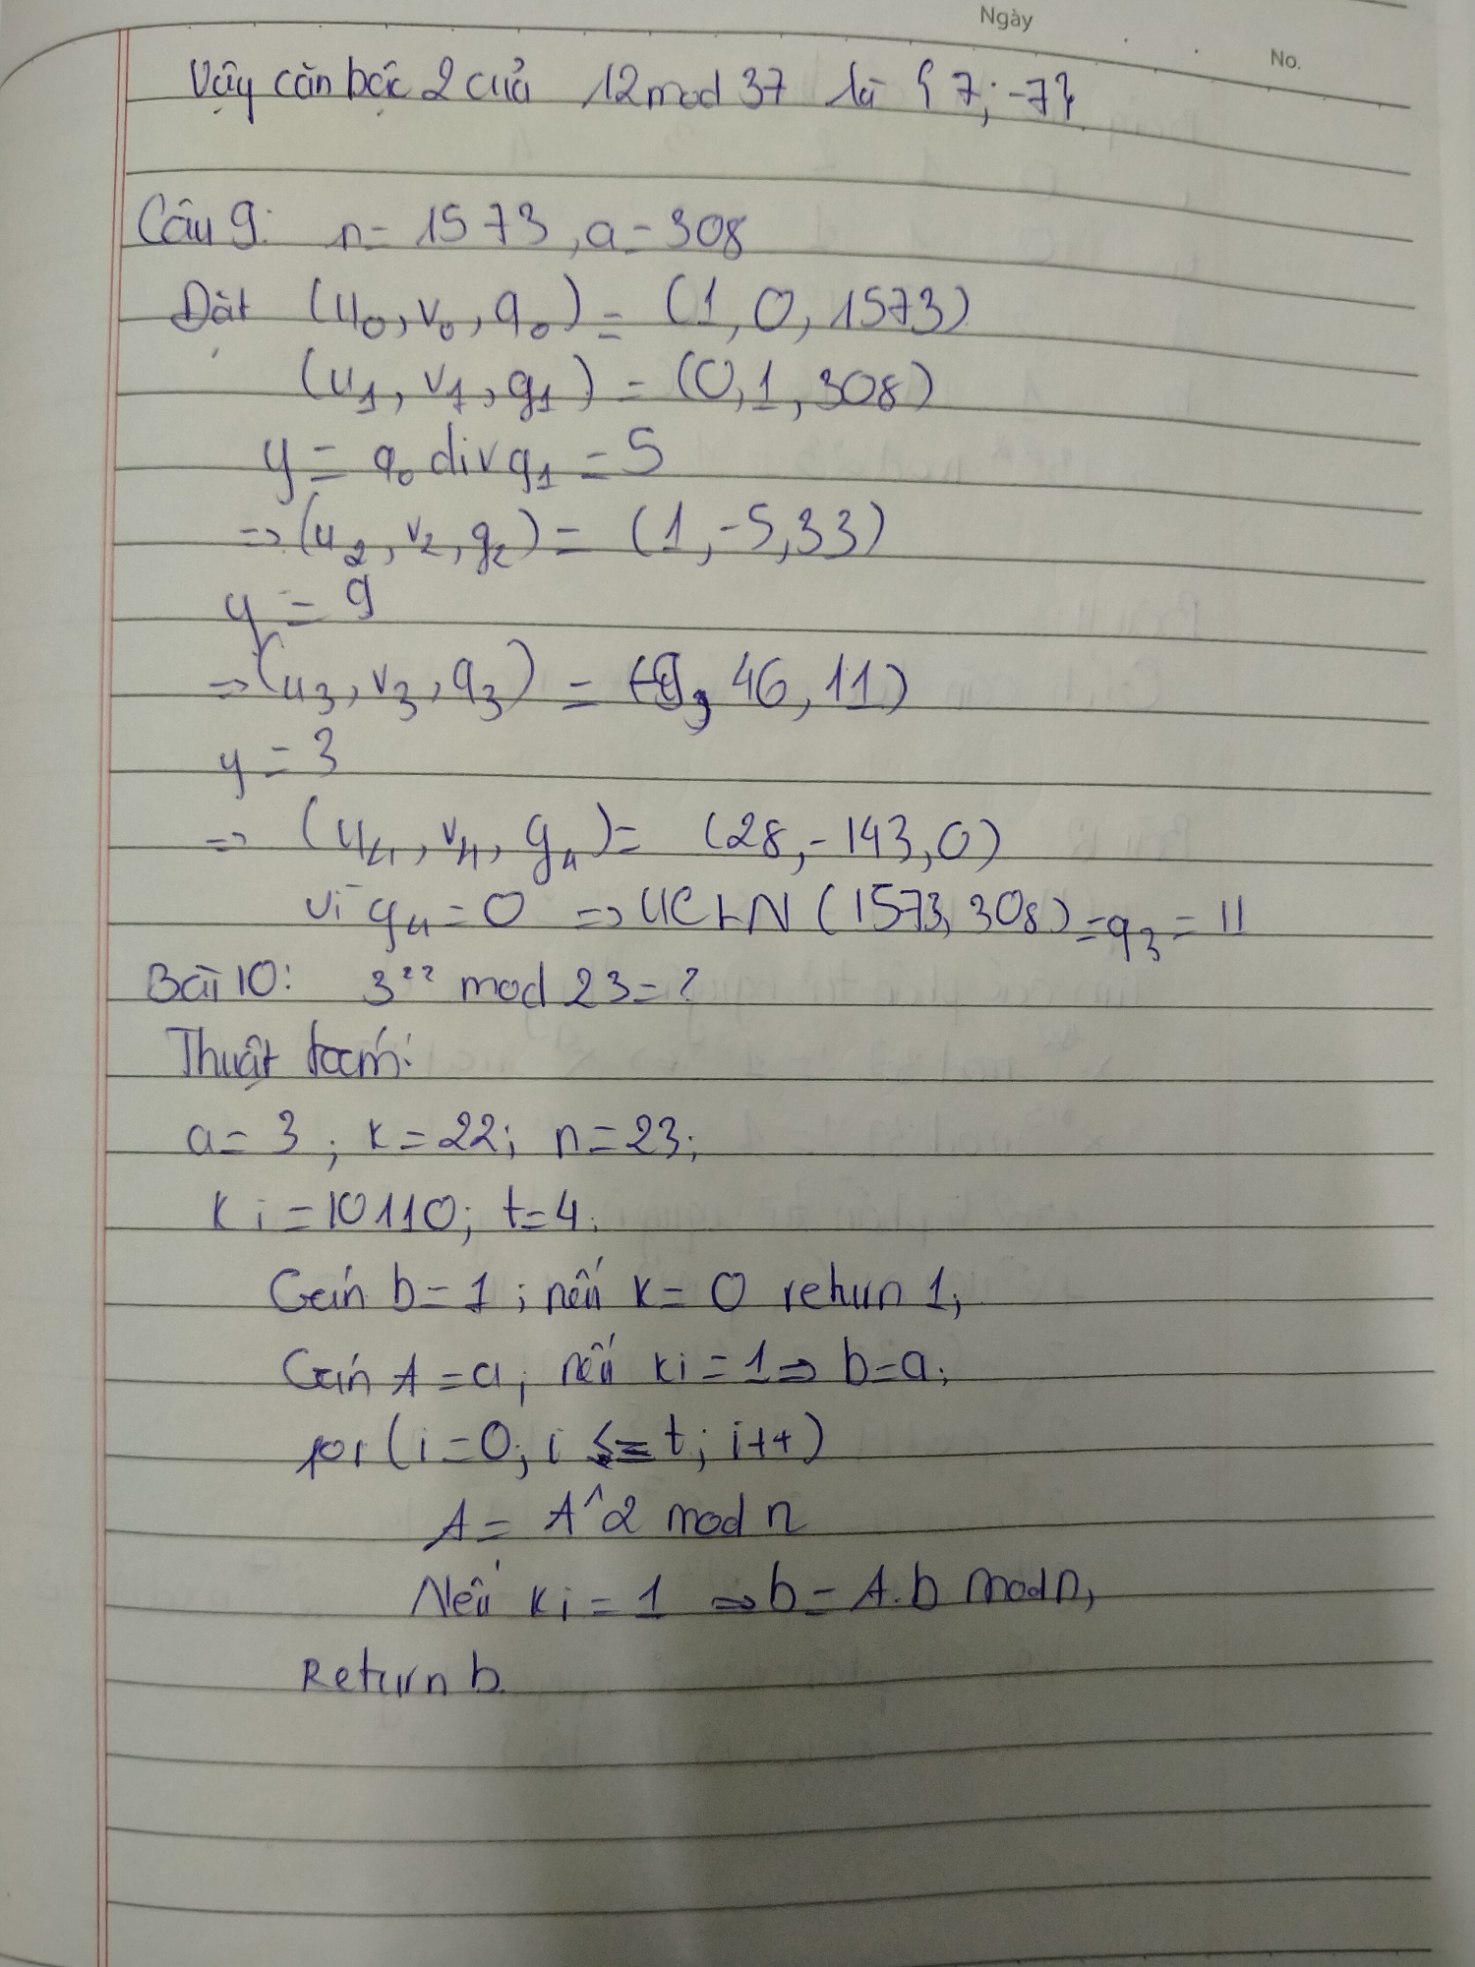 Ngày
No.
Vậy căn bậc 2 của 12 mod 37 là {7; -7}
Câu 9: n = 1573, a = 308
Đặt (u0, v0, g0) = (1, 0, 1573)
(u1, v1, g1) = (0, 1, 308)
y = g0 div g1 = 5
=> (u2, v2, g2) = (1, -5, 33)
y = 9
=> (u3, v3, g3) = (-9, 46, 11)
y = 3
=> (u4, v4, g4) = (28, -143, 0)
vì g4 = 0 => UCLN (1573, 308) = g3 = 11
Bài 10: 3²² mod 23 = ?
Thuật toán:
a = 3; k = 22; n = 23;
Ki = 10110; t = 4.
Gán b = 1; nếu k = 0 return 1;
Gán A = a; nếu ki = 1 => b = a;
for (i = 0; i <= t; i++)
A = A^2 mod n
Nếu Ki = 1 => b = A.b mod n;
Return b.